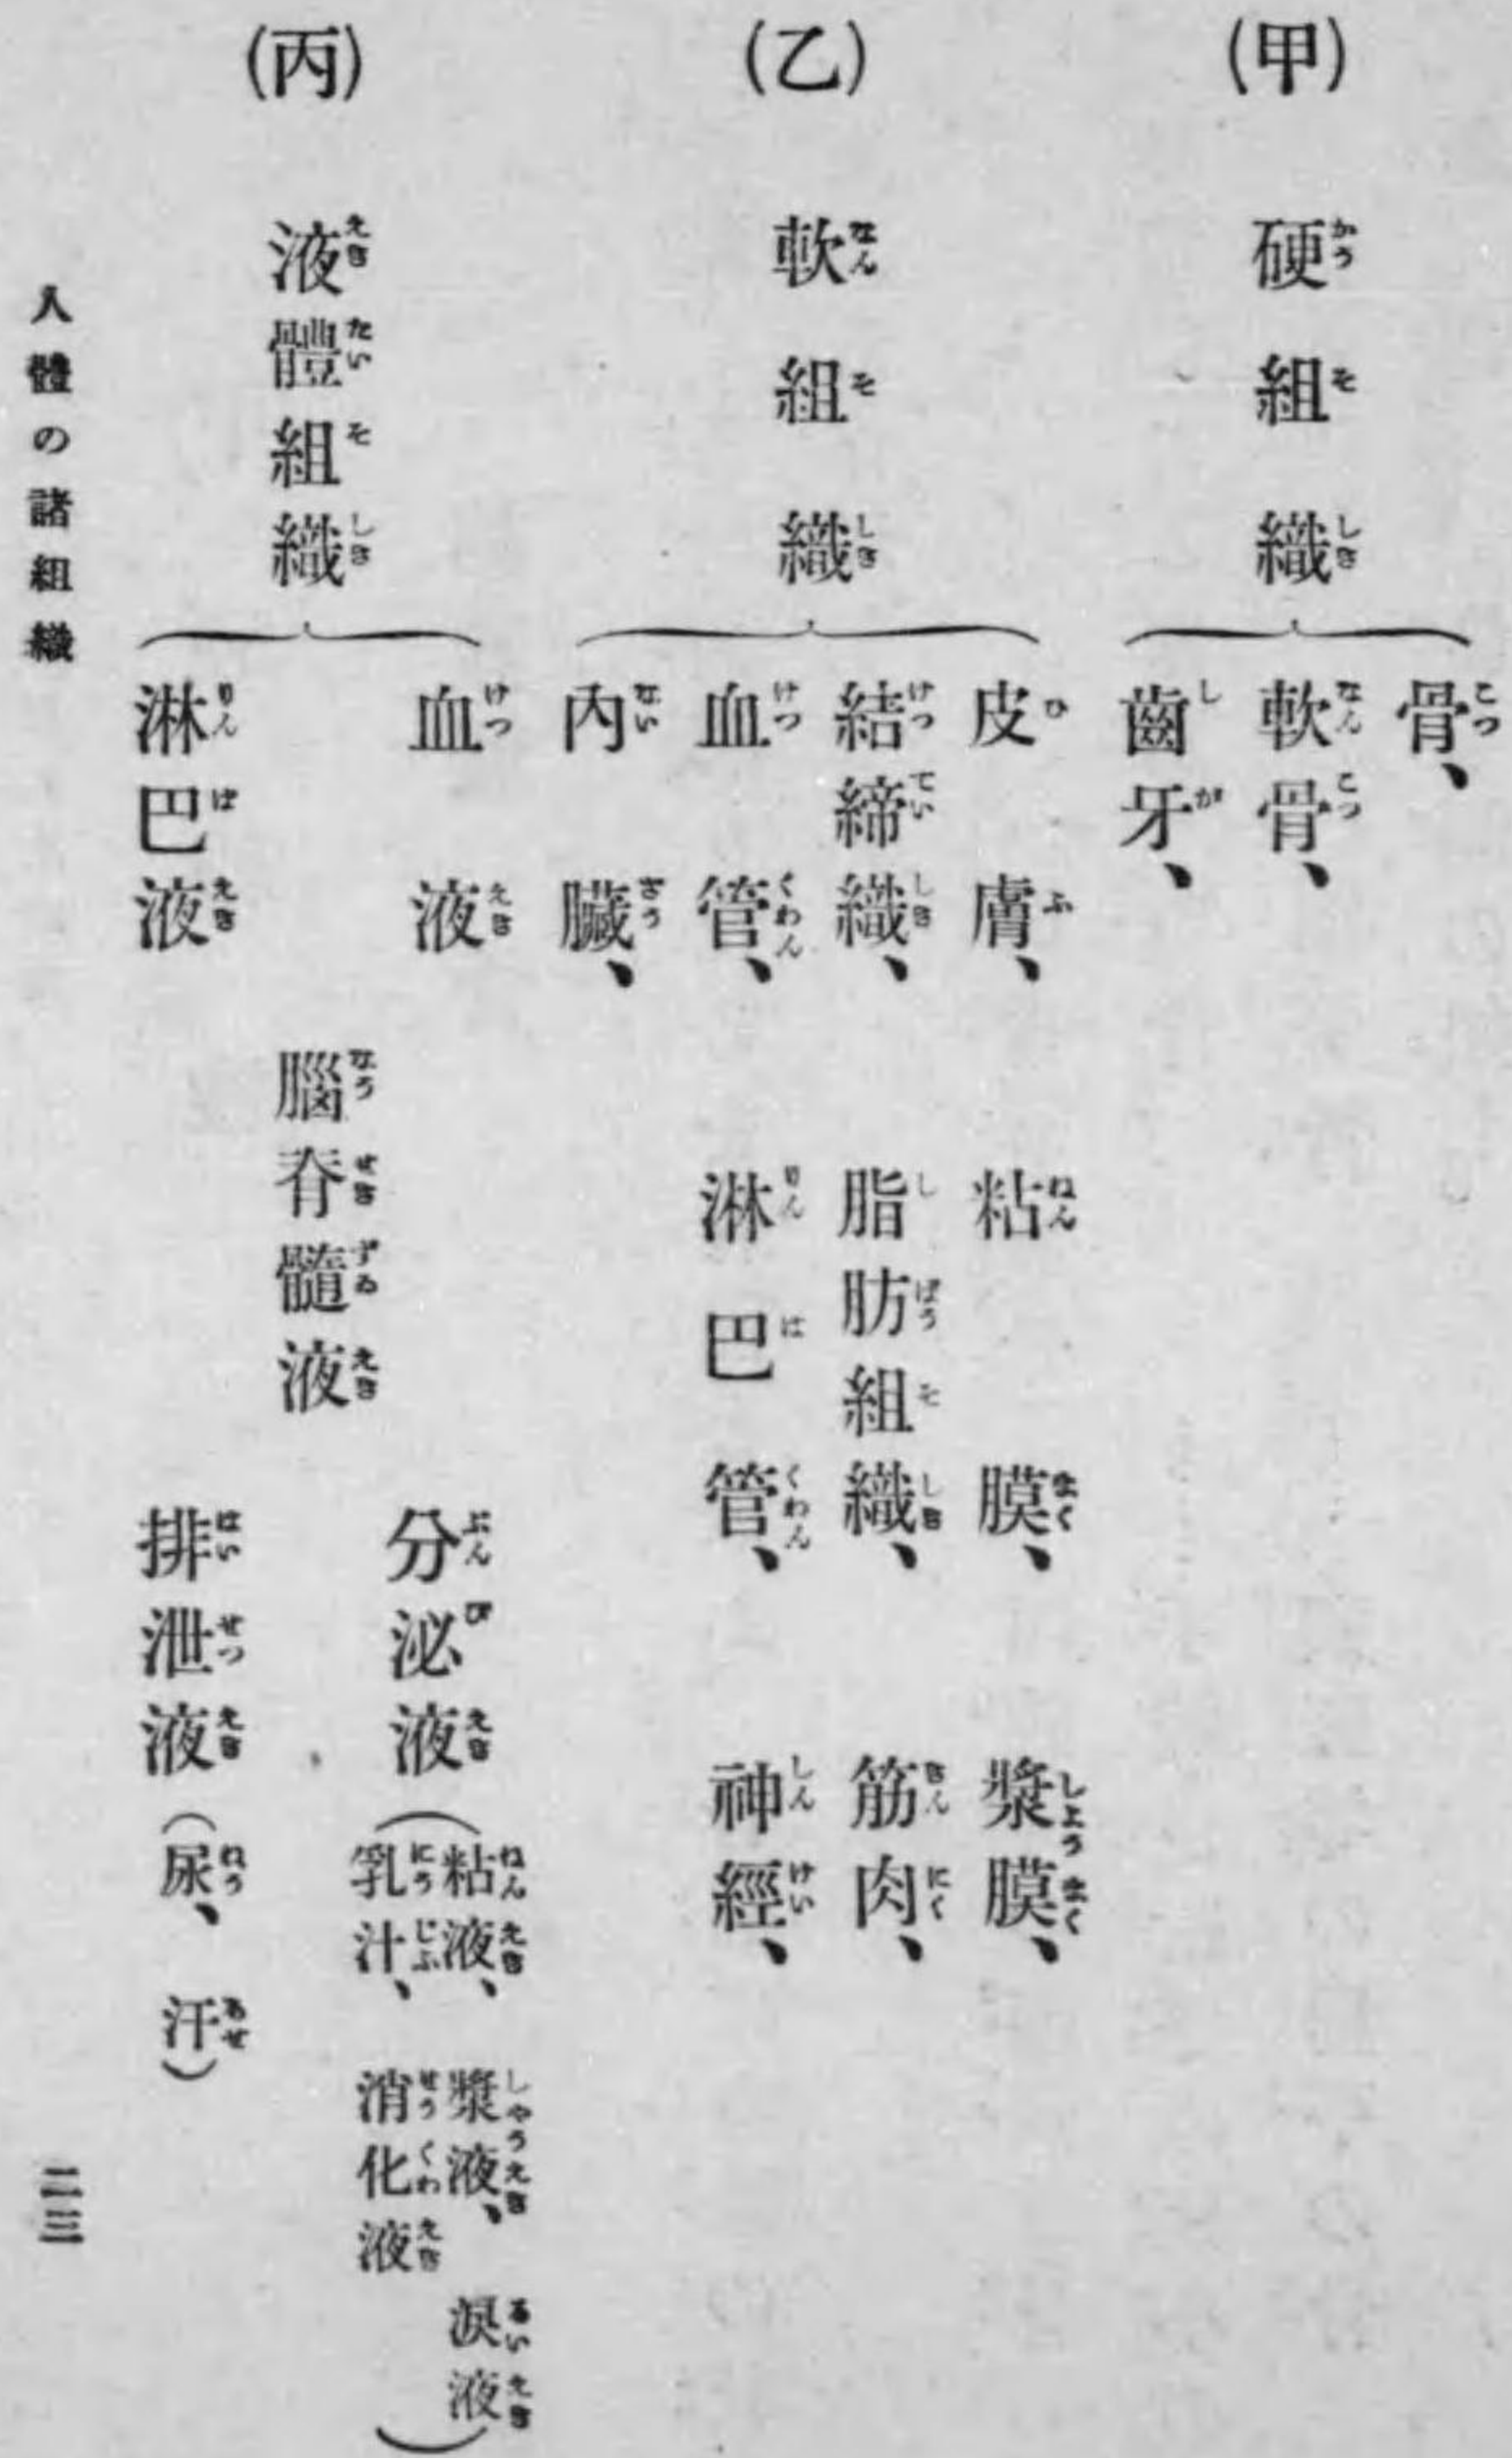 (甲) 硬組織
骨、
軟骨、
齒牙、
(乙) 軟組織
皮膚、 粘膜、 漿膜、
結締織、 脂肪組織、 筋肉、
血管、 淋巴管、 神經、
內臟、
(丙) 液體組織
血液
腦脊髓液
淋巴液
分泌液(粘液、 漿液、 淚液
乳汁、 消化液)
排泄液(尿、 汗)
人體の諸組織
二三